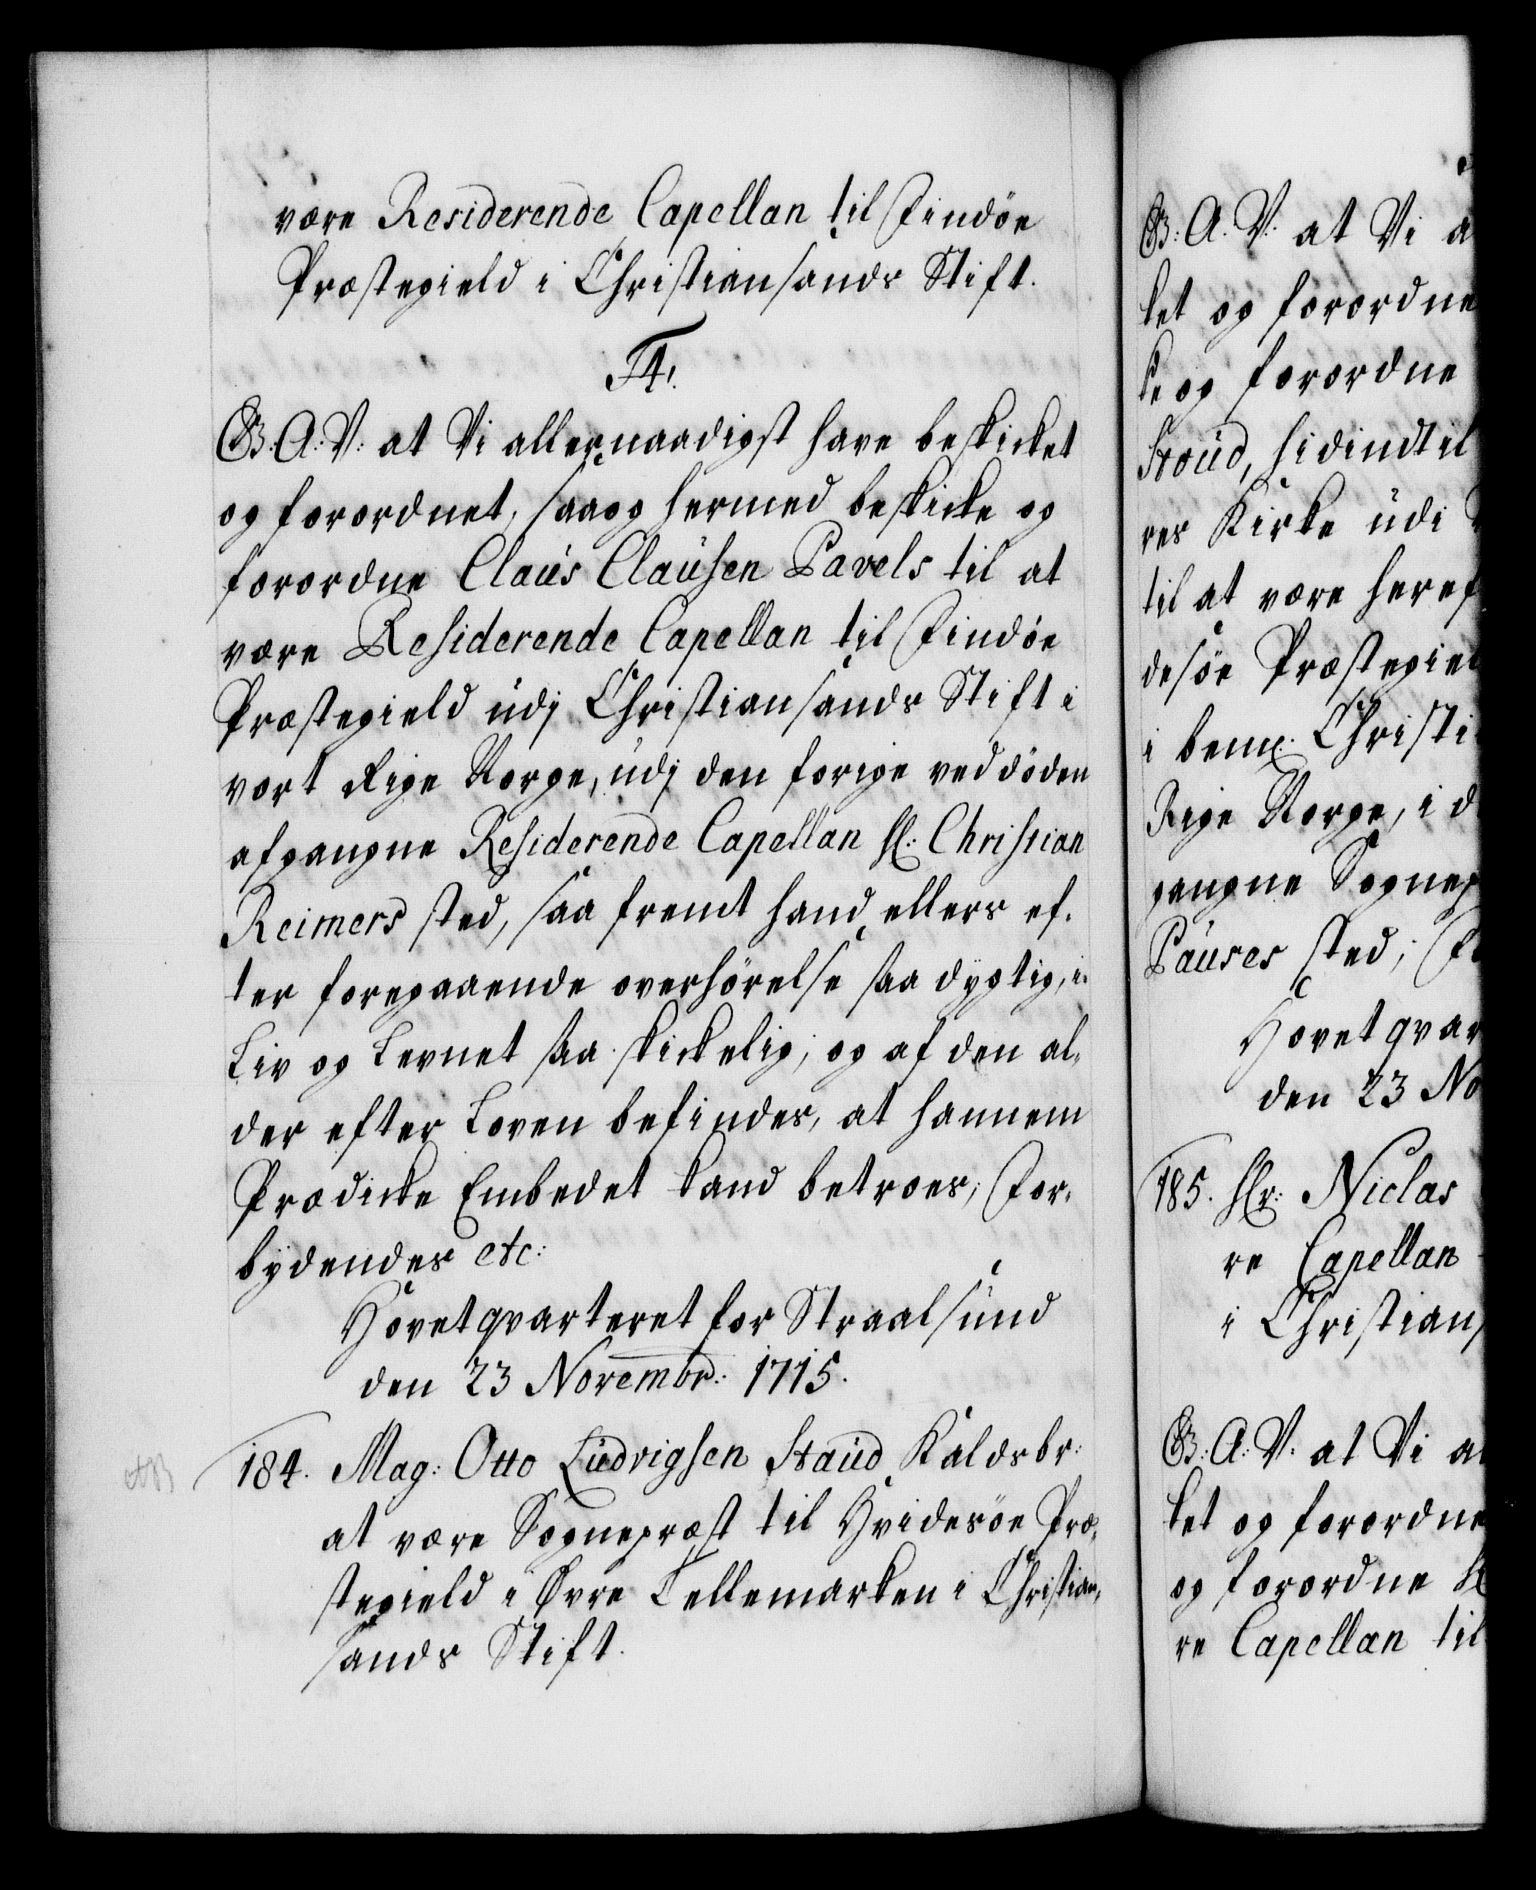 være Residerende Capellan til Findöe
Præstegield i Christiansands Stift.
F4.
G.A.V. at Vi allernaadigst have beskicket
og forordnet, saaog hermed beskicke og
forordne Claus Clausen Pavels til at
være Residerende Capellan til Findöe
Præstegield udj Christiansands Stift i
vort Rige Norge, udj den forige ved döden
afgangne Residerende Capellan Sl: Christian
Reimers sted, saa fremt hand ellers ef-
ter foregaaende overhörelse saa dygtig, i
Liv og Levnet saa skickelig, og af den al-
der efter Loven befindes, at hannem
Prædicke Embedet kand betroes, For-
bydendes etc:
Hovetqvarteret for Straalsund
den 23 Novembr: 1715.
184. Mag: Otto Ludvigsen Staud Kaldsbr:
at være Sognepræst til Hvidesöe Præ-
stegield i Övre Tellemarken i Christian-
sands Stift.
G: A. V. at Vi a
ket og forordne
ke og forordne
Stoud, hidindtil
res Kirke udi
til at være heref
desöe Præstegiel
i bem: Christi
Rige Norge, i d
gangne Sognep
Pauses sted, Fo
Hovetqvar
den 23 No
185. Hr: Niclas
re Capellan
i Christians
G: A: V. at Vi a
ket og forordne
og forordne H
re Capellan til